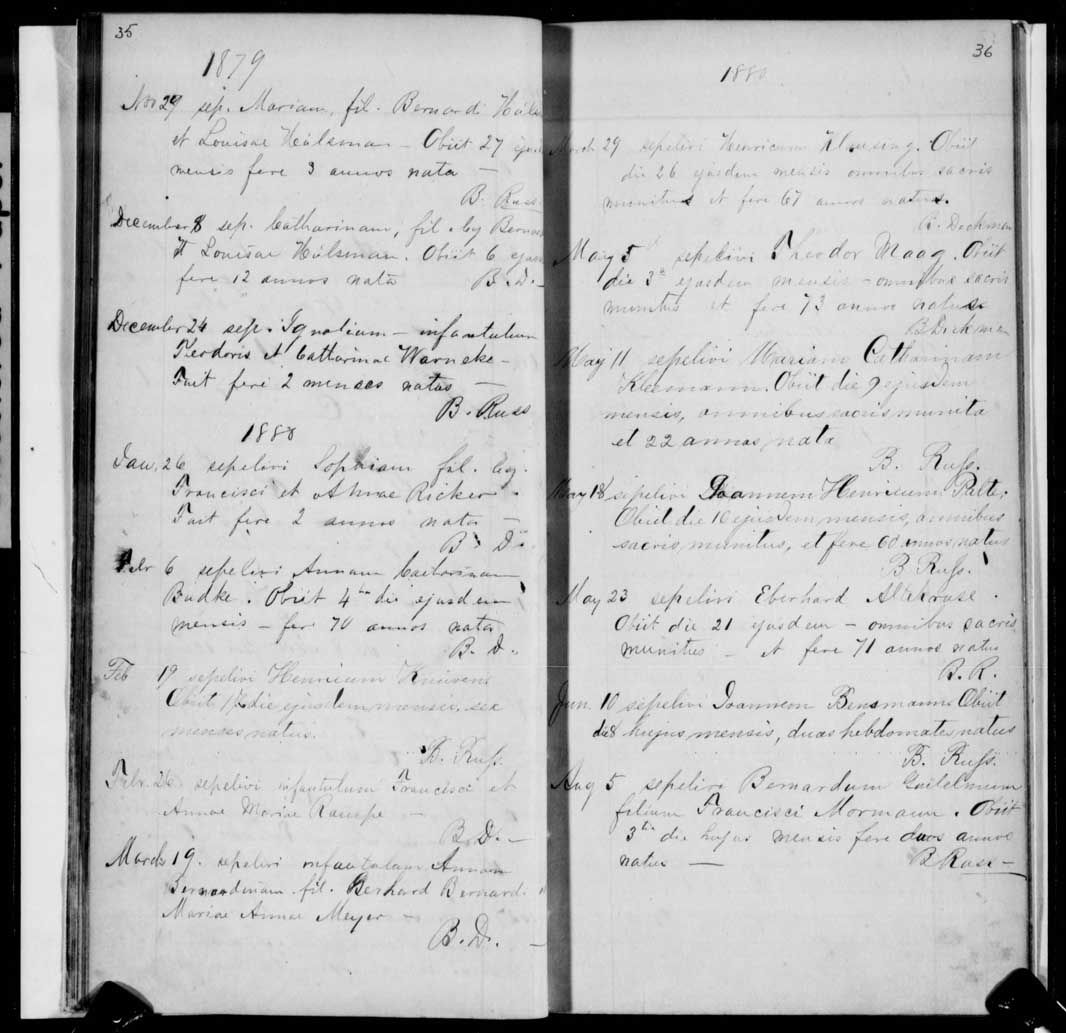 35
1879
Nov 29 sep. Mariam, fil. Bernardi
et Louisae Hülsman — Obiit 27
mensis fere 3 annos nata —
B. Russ
December 8 sep. Catharinam, fil. leg
et Louisae Hülsman. Obiit 6
fere 12 annos nata B. D. —
December 24 sep. Ignatium — infantulum
Teodoris et Catharinae Warneke —
Fuit fere 2 menses natus —
B. Russ
1880
Jan. 26 sepelivi Sophiam fil. leg.
Francisci et Annae Ricker.
Fuit fere 2 annos nata —
B. D.
Febr 6 sepelivi Annam Catharinam
Budke. Obiit 4 die ejusdem
mensis — fere 70 annos nata
B. D.
Feb 19 sepelivi Henricum
Obiit die ejusdem mensis, sex
menses natus.
B. Russ.
Febr. 26 sepelivi infantulum Francisci et
Annae Mariae —
B. D. —
March 19. sepelivi infantulam Annam
Bernardinam fil. Gerhard Bernardi
Mariae Annae Meyer —
B. D. —
36
1880
March 29 sepelivi Henricum Klausing. Obiit
die 26 ejusdem mensis omnibus sacris
munitus et fere 67 annos natus.
B. Dickman
May 5 sepelivi Theodor Maag. Obiit
die 3 ejusdem mensis — omnibus sacris
munitus et fere 73 annos natus
B Dickman
May 11 sepelivi Mariam Catharinam
Kleemann. Obiit die 9 ejusdem
mensis, omnibus sacris munita
et 22 annos nata
B. Russ.
May 18 sepelivi Joannem Henricum
Obiit die 16 ejusdem mensis, omnibus
sacris munitus, et fere 60 annos natus
B Russ.
May 23 sepelivi Eberhard
Obiit die 21 ejusdem — omnibus sacris
munitus — et fere 71 annos natus
B. R.
Jun. 10 sepelivi Joannem Bensmann Obiit
die 8 hujus mensis, duas hebdomates natus
B. Russ.
Aug 5 sepelivi Bernardum Guilelmum
filium Francisci Mormann. Obiit
3 die hujus mensis fere duos annos
natus — B Russ —